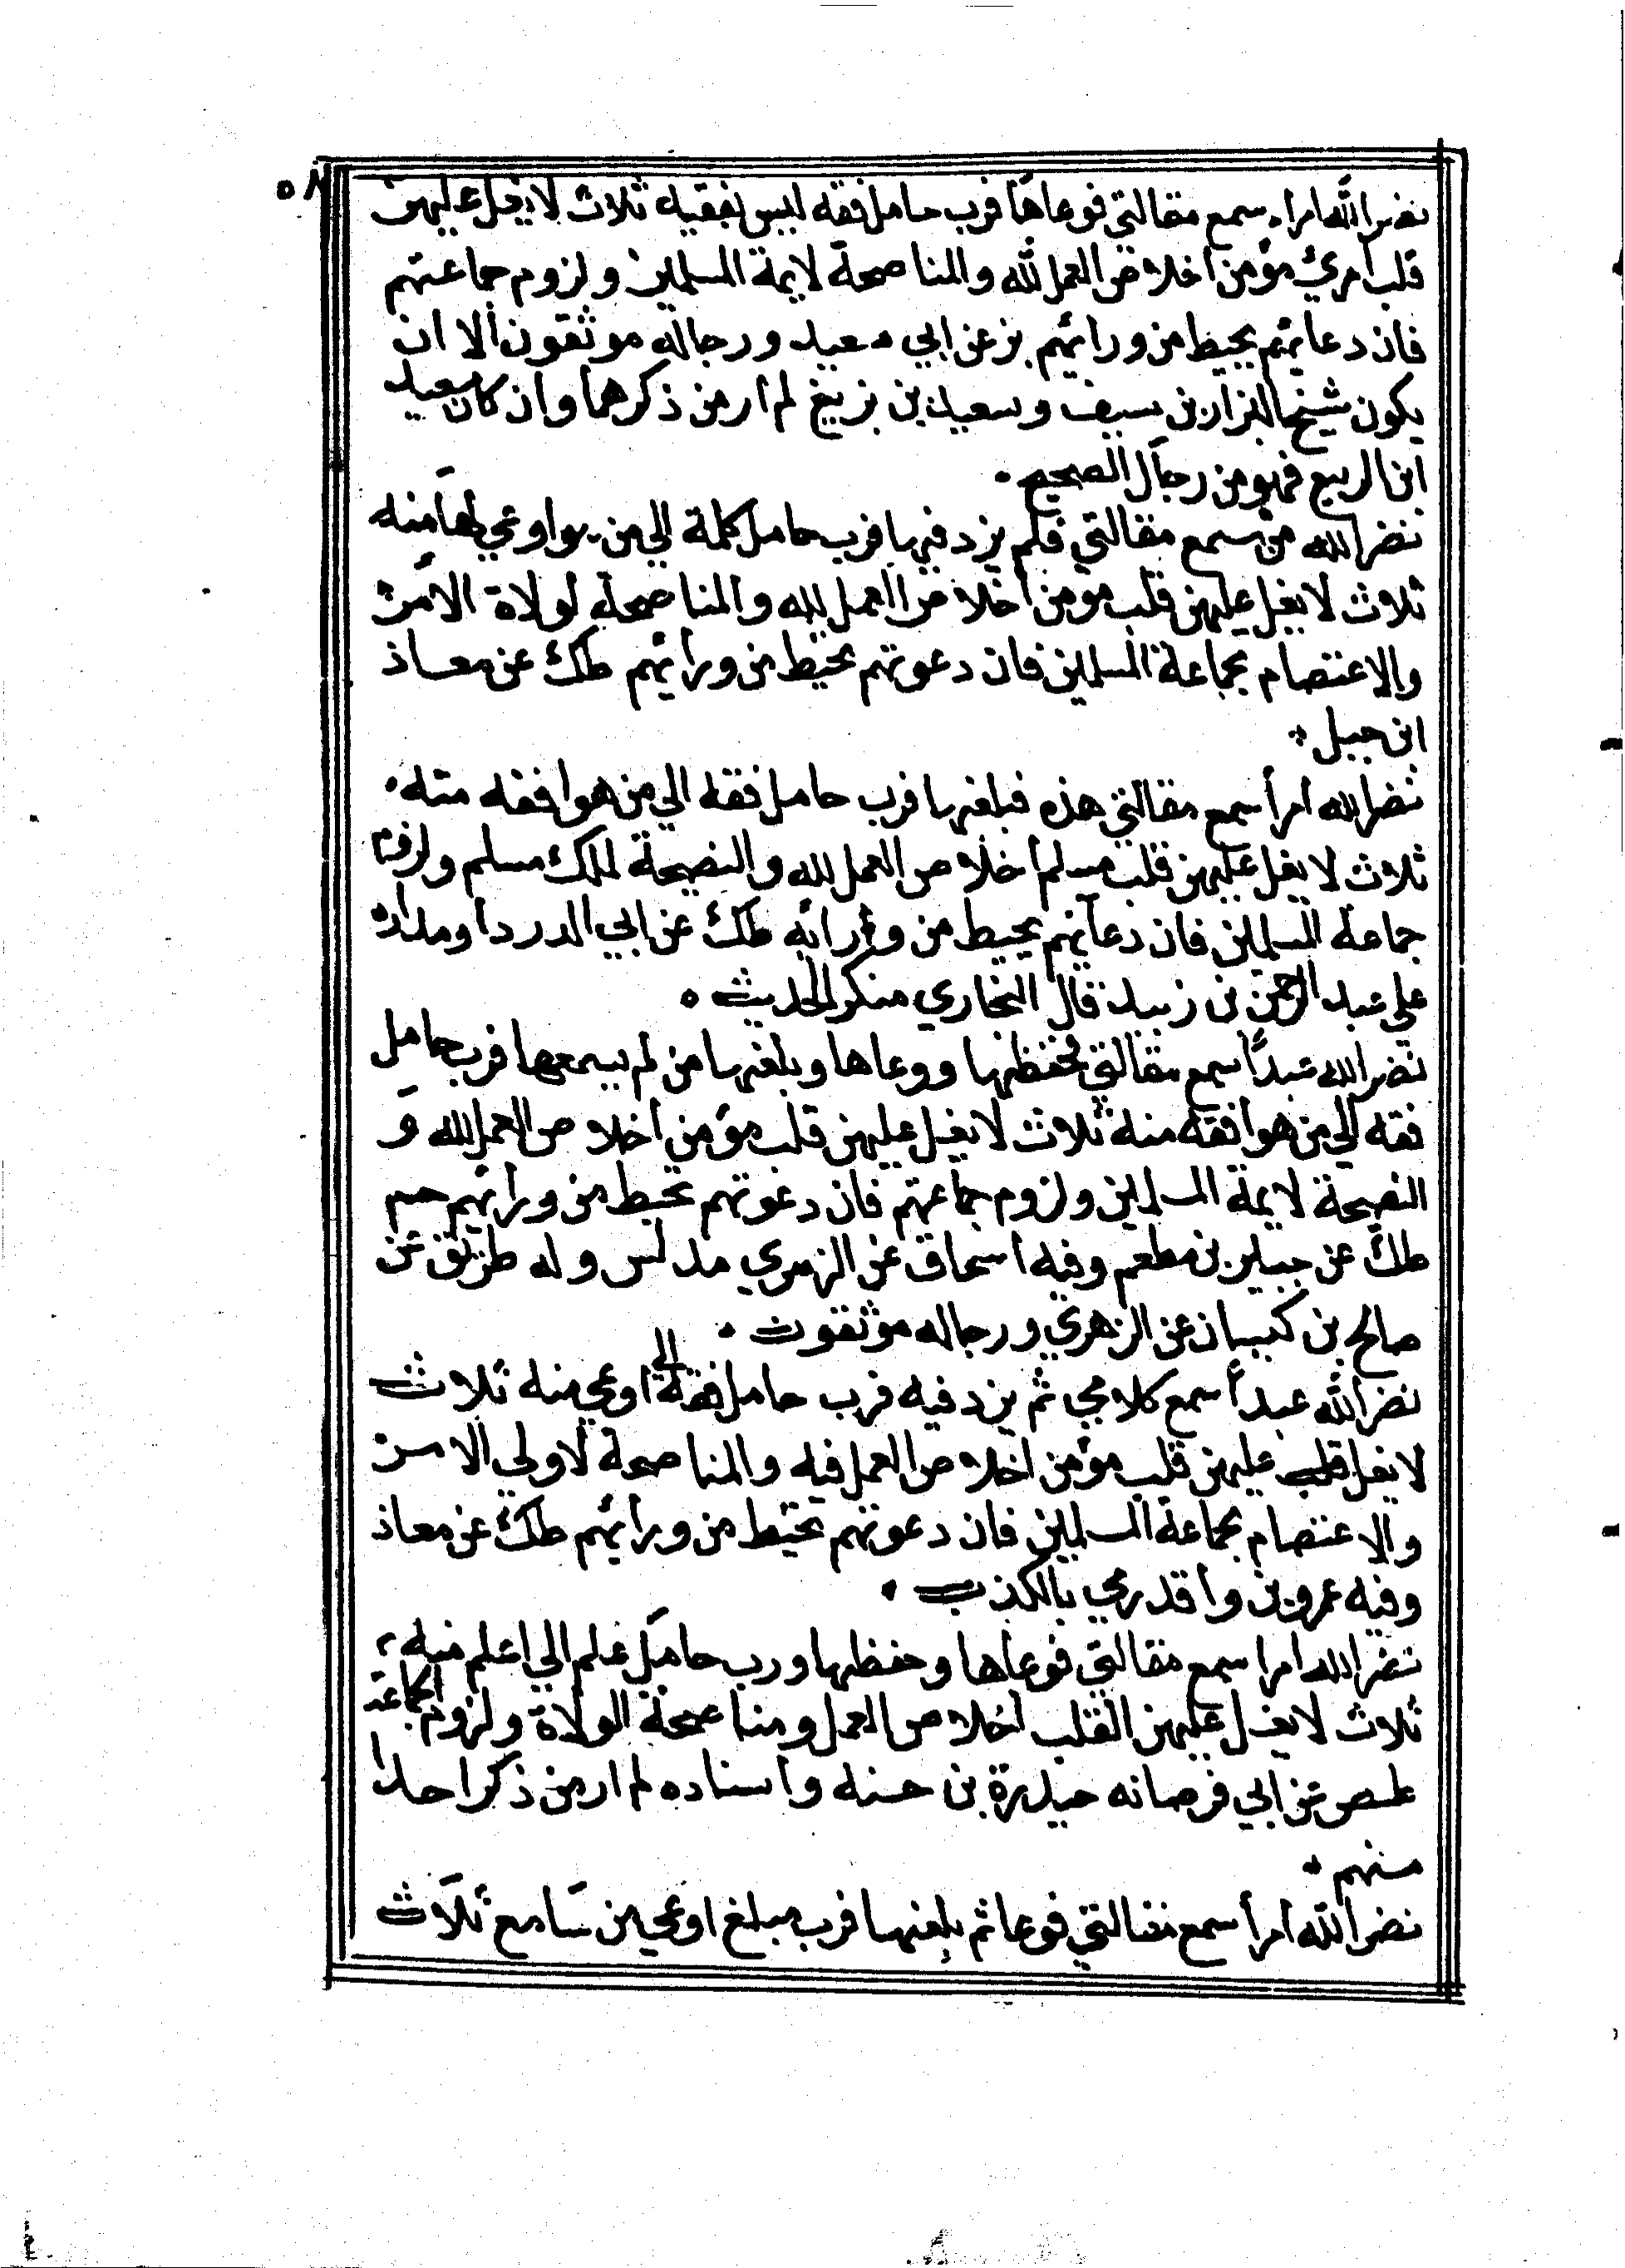 ٥٨
نضر الله امراء سمع مقالتي فوعاها فرب حامل فقه ليس بفقيه ثلاث لا يغل عليهن
قلب امرئ مؤمن اخلاص العمل لله والمناصحة لايمة المسلمين ولزوم جماعتهم
فان دعائهم يحيط من ورائهم بز عن ابي سعيد ورجاله موثقون الا ان
يكون شيخ البزار بن سيف وسعيد بن بزيغ لم ار من ذكرهما وان كان سعيد
ابن الربيع فهو من رجال الصحيح ۰
نضر الله من سمع مقالتي فلم يزد فيها فرب حامل كلمة الي من هو اوعي لها منه
ثلاث لا يغل عليهن قلب مومن اخلاص العمل لله والمناصحة لولاة الامر
والاعتصام بجماعة المسلمين فان دعوتهم تحيط من ورائهم طك عن معاذ
ابن جبل ۰
نضر الله امرأ سمع مقالتي هذه فبلغها فرب حامل فقه الي من هو افقه منه ۰
ثلاث لا يغل عليهن قلب مسلم اخلاص العمل لله والنصيحة لملك مسلم ولزوم
جماعة المسلمين فان دعائهم يحيط من ورائه طك عن ابي الدردا ومداره
علي عبد الرحمن بن زبيد قال البخاري منكر الحديث ۰
نضر الله عبدًا سمع مقالتي فحفظها ووعاها وبلغها من لم يسمعها فرب حامل
فقه الي من هو افقه منه ثلاث لا يغل عليهن قلب مؤمن اخلاص العمل لله و
النصيحة لايمة المسلمين ولزوم جماعتهم فان دعوتهم تحيط من ورائهم حم
طك عن جبير بن مطعم وفيه اسحاق عن الزهري مدلس وله طريق عن
صالح بن كيسان عن الزهري ورجاله موثقون ۰
نضر الله عبدأ سمع كلامي ثم يزد فيه فرب حامل فقه الي اوعي منه ثلاث
لا يغل قلب عليهن قلب مؤمن اخلاص العمل فيه والمناصحة لاولي الامر
والاعتصام بجماعة المسلمين فان دعوتهم تحيط من ورائهم طك عن معاذ
وفيه عمرو بن واقد رمي بالكذب ۰
نضر الله امرا سمع مقالتي فوعاها وحفظها ورب حامل علم الي اعلم منه ،
ثلاث لا يغل عليهن القلب اخلاص العمل ومناصحة الولاة ولزوم الجماعة
طص عن ابي قرصافه حيدرة بن حسنه واسناده لم ار من ذكر احدا
منهم ۰
نضر الله امرأ سمع مقالتي فوعا ثم بلغها فرب مبلغ اوعي من سامع ثلاث